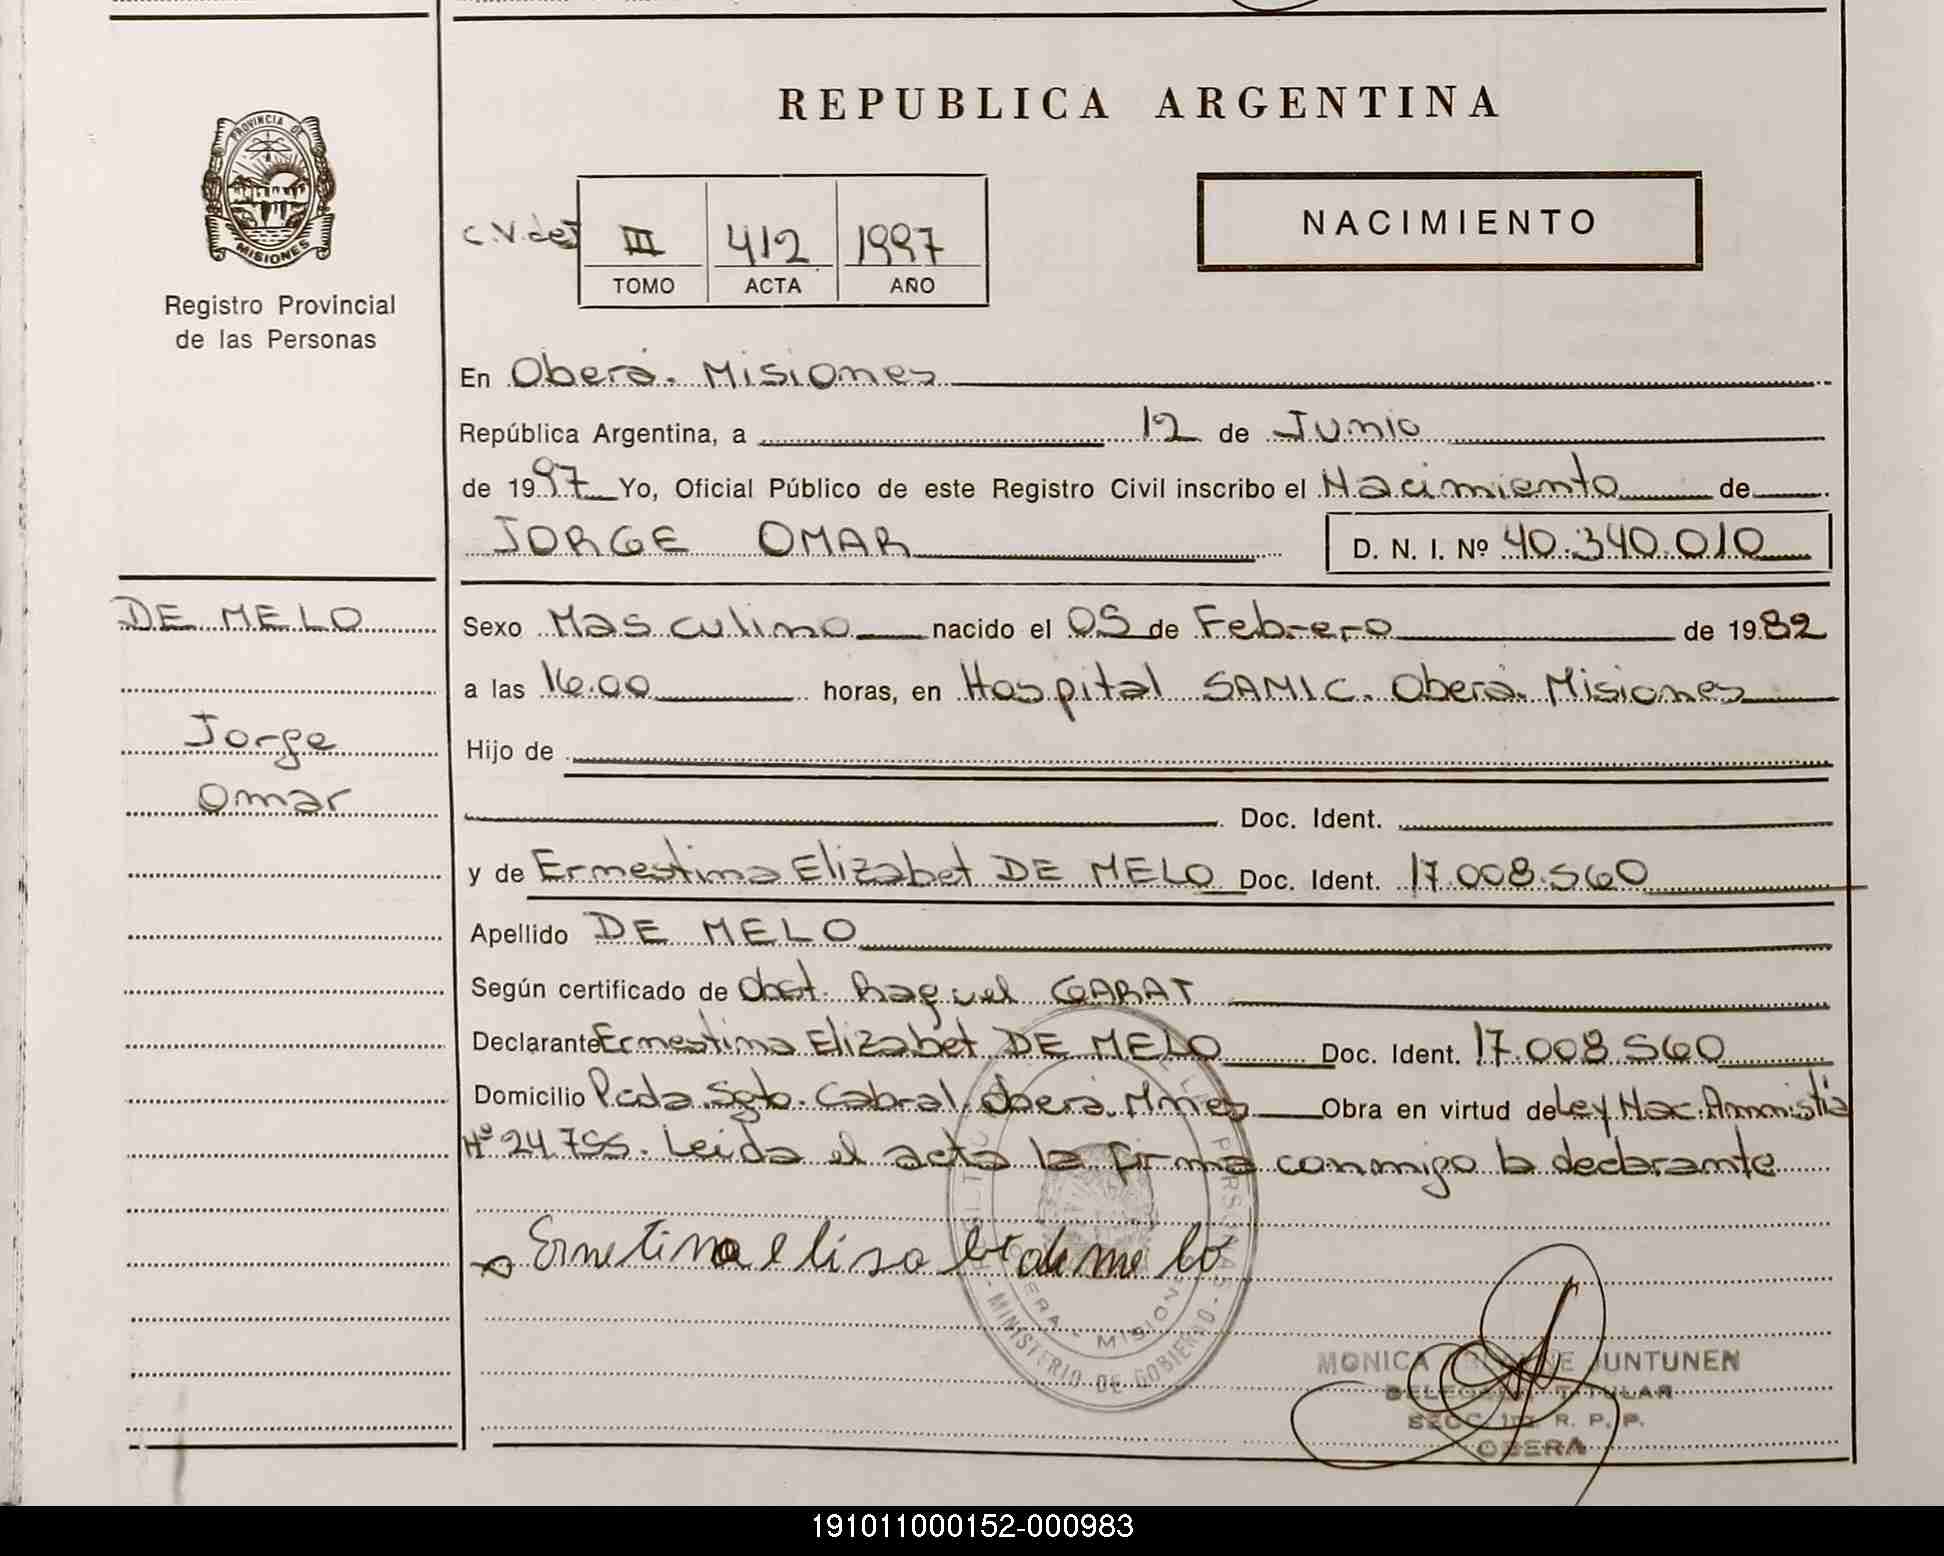 REPUBLICA ARGENTINA
PROVINCIA DE
MISIONES
Registro Provincial
de las Personas
C.V.de
III 412 1997
TOMO ACTA AÑO
NACIMIENTO
En Oberá. Misiones
República Argentina, a 12 de Junio
de 1997 Yo, Oficial Público de este Registro Civil inscribo el Nacimiento de
JORGE OMAR D. N. I. Nº 40.340.010
DE MELO
Jorge
Omar
Sexo Masculino nacido el 05 de Febrero de 1982
a las 16.00 horas, en Hospital SAMIC. Oberá. Misiones
Hijo de
Doc. Ident.
y de Ernestina Elizabet DE MELO Doc. Ident. 17.008.560
Apellido DE MELO
Según certificado de Obst. Raquel GARAT
Declarante Ernestina Elizabet DE MELO Doc. Ident. 17.008.560
Domicilio Pcda. Sgto. Cabral. Oberá. Mnes Obra en virtud de Ley Nac. Amnistia
Nº 24.755. Leida el acta la firma conmigo la declarante
Ernetina elisa bet de me lo
MINISTERIO DE GOBIERNO
MONICA JUNTUNEN
DELEGADA TITULAR
SECC. 1ra R. P. P.
OBERA
191011000152-000983